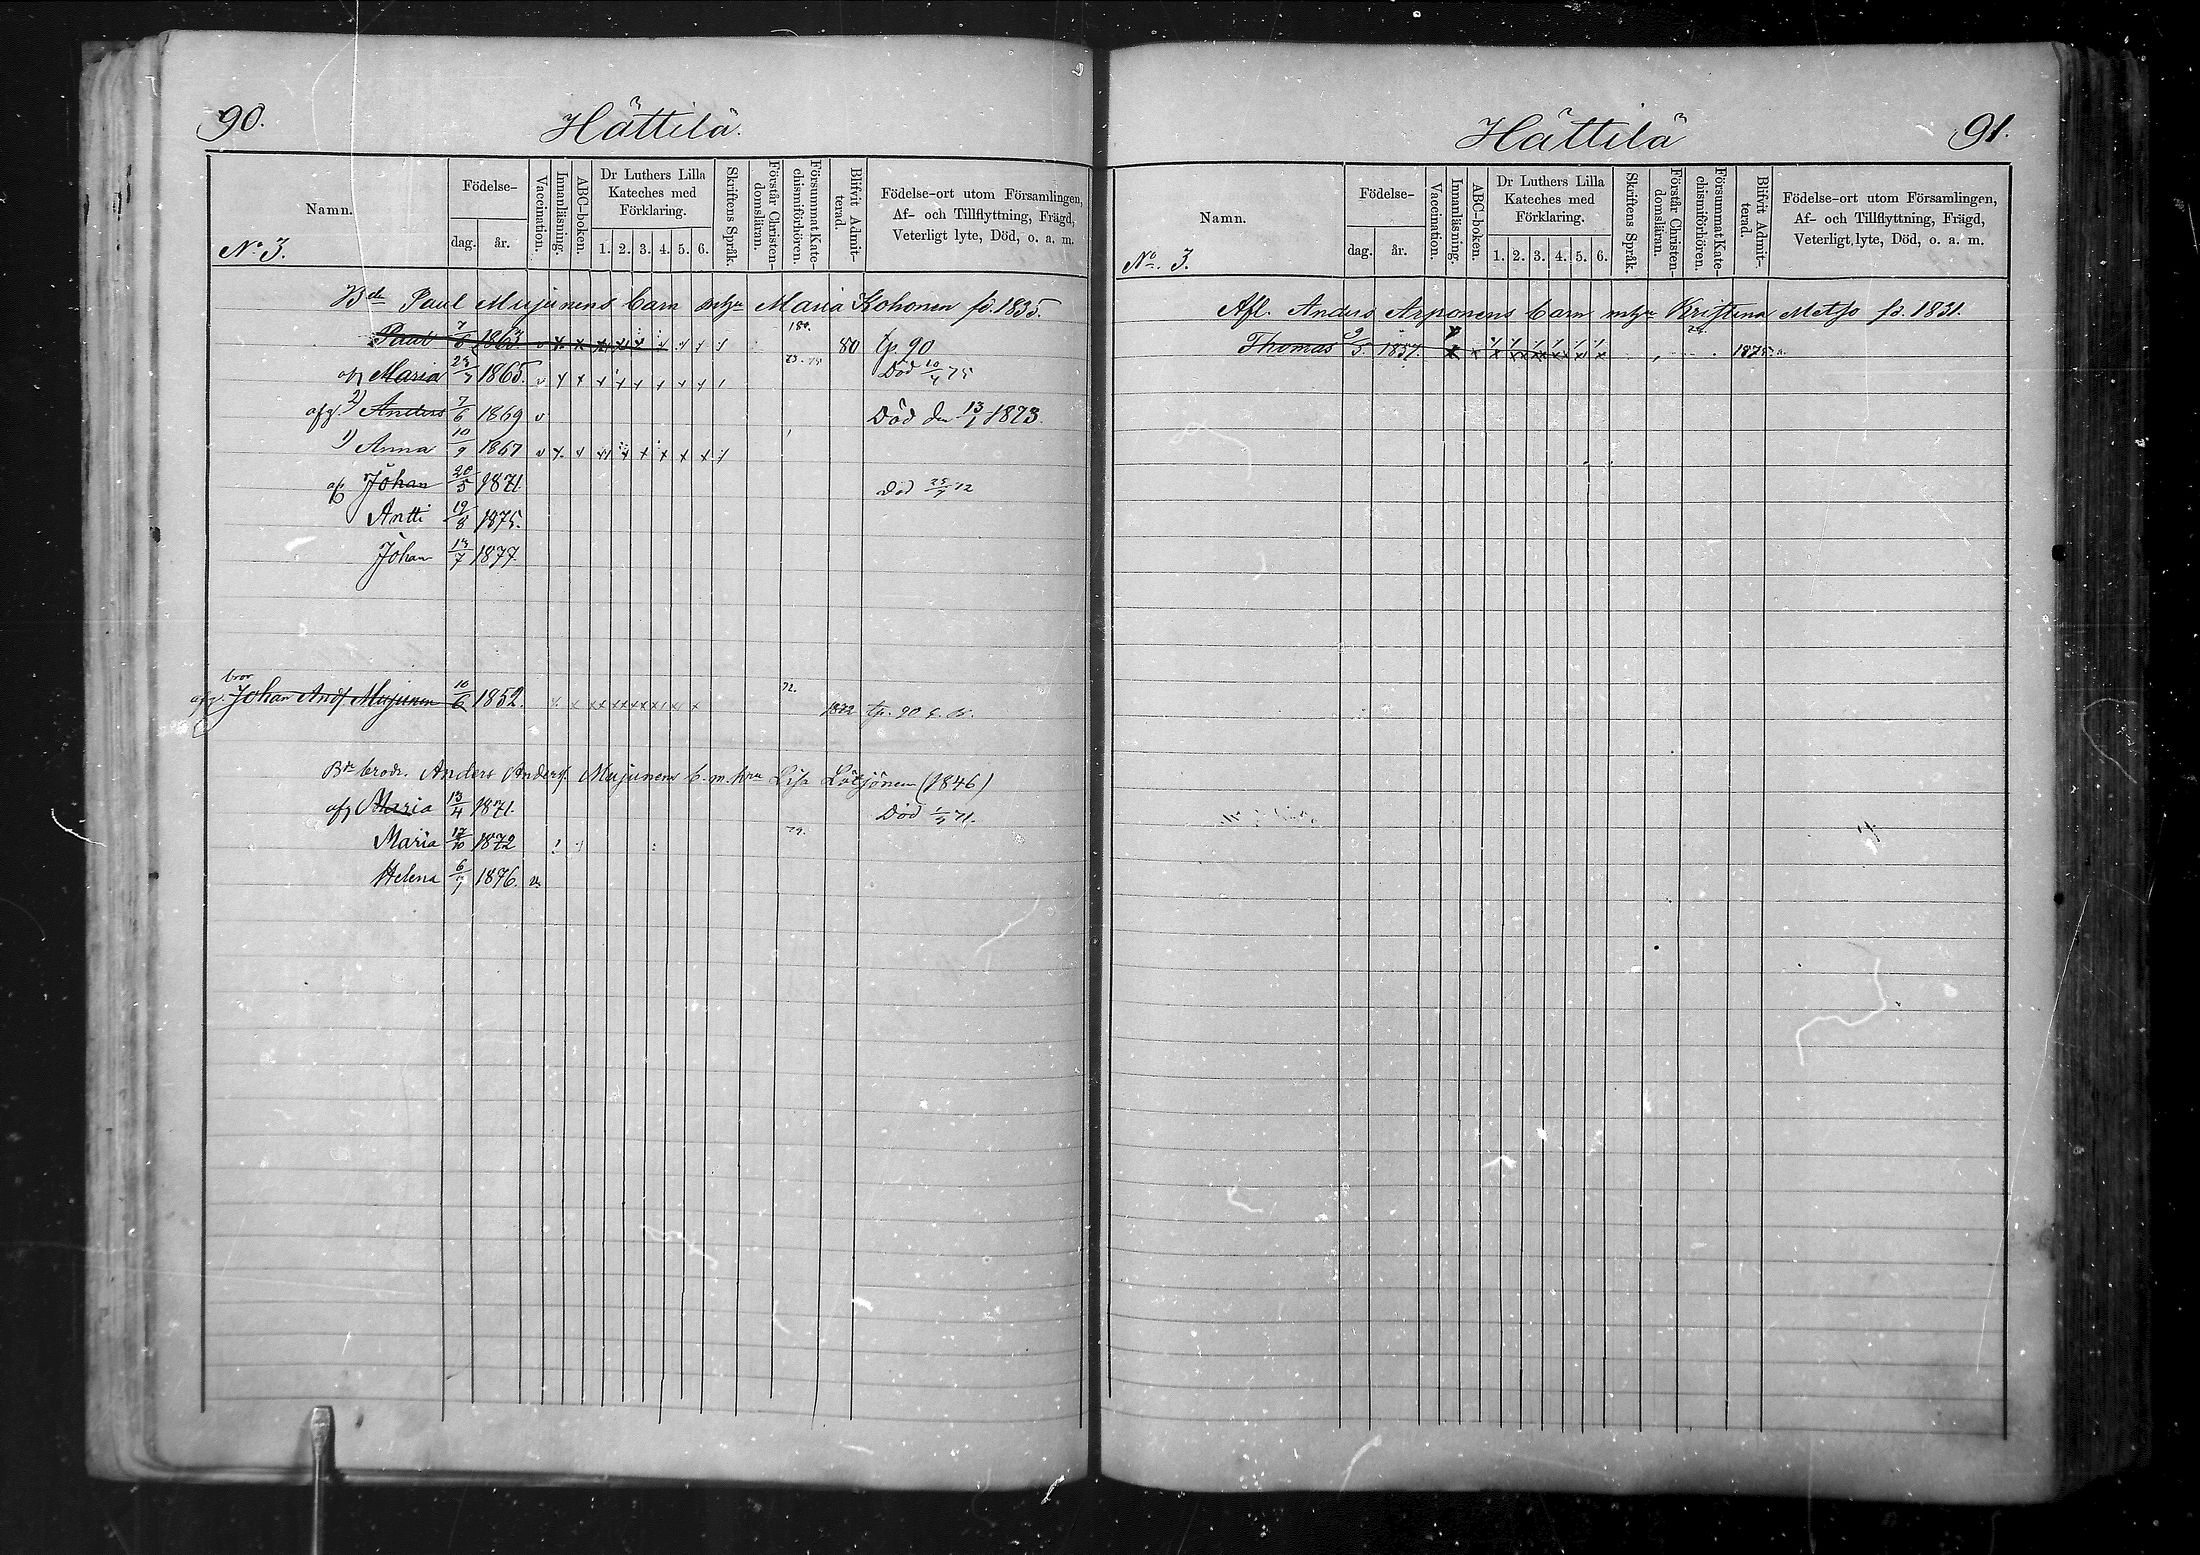 90.
Hättilä.
Namn.
Födelse-
dag.
år.
Vaccination.
Innanläsning.
ABC-boken.
Dr Luthers Lilla Kateches med Förklaring.
1. 2. 3. 4. 5. 6.
Skriftens Språk.
Förstår Christendomsläran.
Försummat Katechismiförhören.
Blifvit Admitterad.
Födelse-ort utom Församlingen, Af- och Tillflyttning, Frägd, Veterligt lyte, Död, o. a. m.
No 3.
Bde Paul Mujunens barn Maria Kohonen fö. 1835.
Paul 7/6 1863 v x x 80 tp. 90
Maria 1865. v x x x x x x x x Död 10/4 75
2) Anders 7/6 1869 v Död den 13/1 1873.
1) Anna 10/9 1867 v x x x x x x x x
Johan 20/5 1871. Död
Antti 19/8 1875.
Johan 13/7 1877.
bror
Johan And. Mujunen 10/6 1852. 72. 1872 tp. 90
brodr. Anders Anders. Mujunens b. m. hru Lisa Lötjönen (1846)
Maria 13/4 1871. Död 71.
Maria 17/10 1872
Helena 6/7 1876. v.
91.
Hättilä
Namn.
Födelse-
dag.
år.
Vaccination.
Innanläsning.
ABC-boken.
Dr Luthers Lilla Kateches med Förklaring.
1. 2. 3. 4. 5. 6.
Skriftens Språk.
Förstår Christendomsläran.
Försummat Katechismiförhören.
Blifvit Admitterad.
Födelse-ort utom Församlingen, Af- och Tillflyttning, Frägd, Veterligt lyte, Död, o. a. m.
No. 3.
Afl. Anders Arponens barn Kristina Metso fö. 1831.
Thomas 9/5 1857. 1875